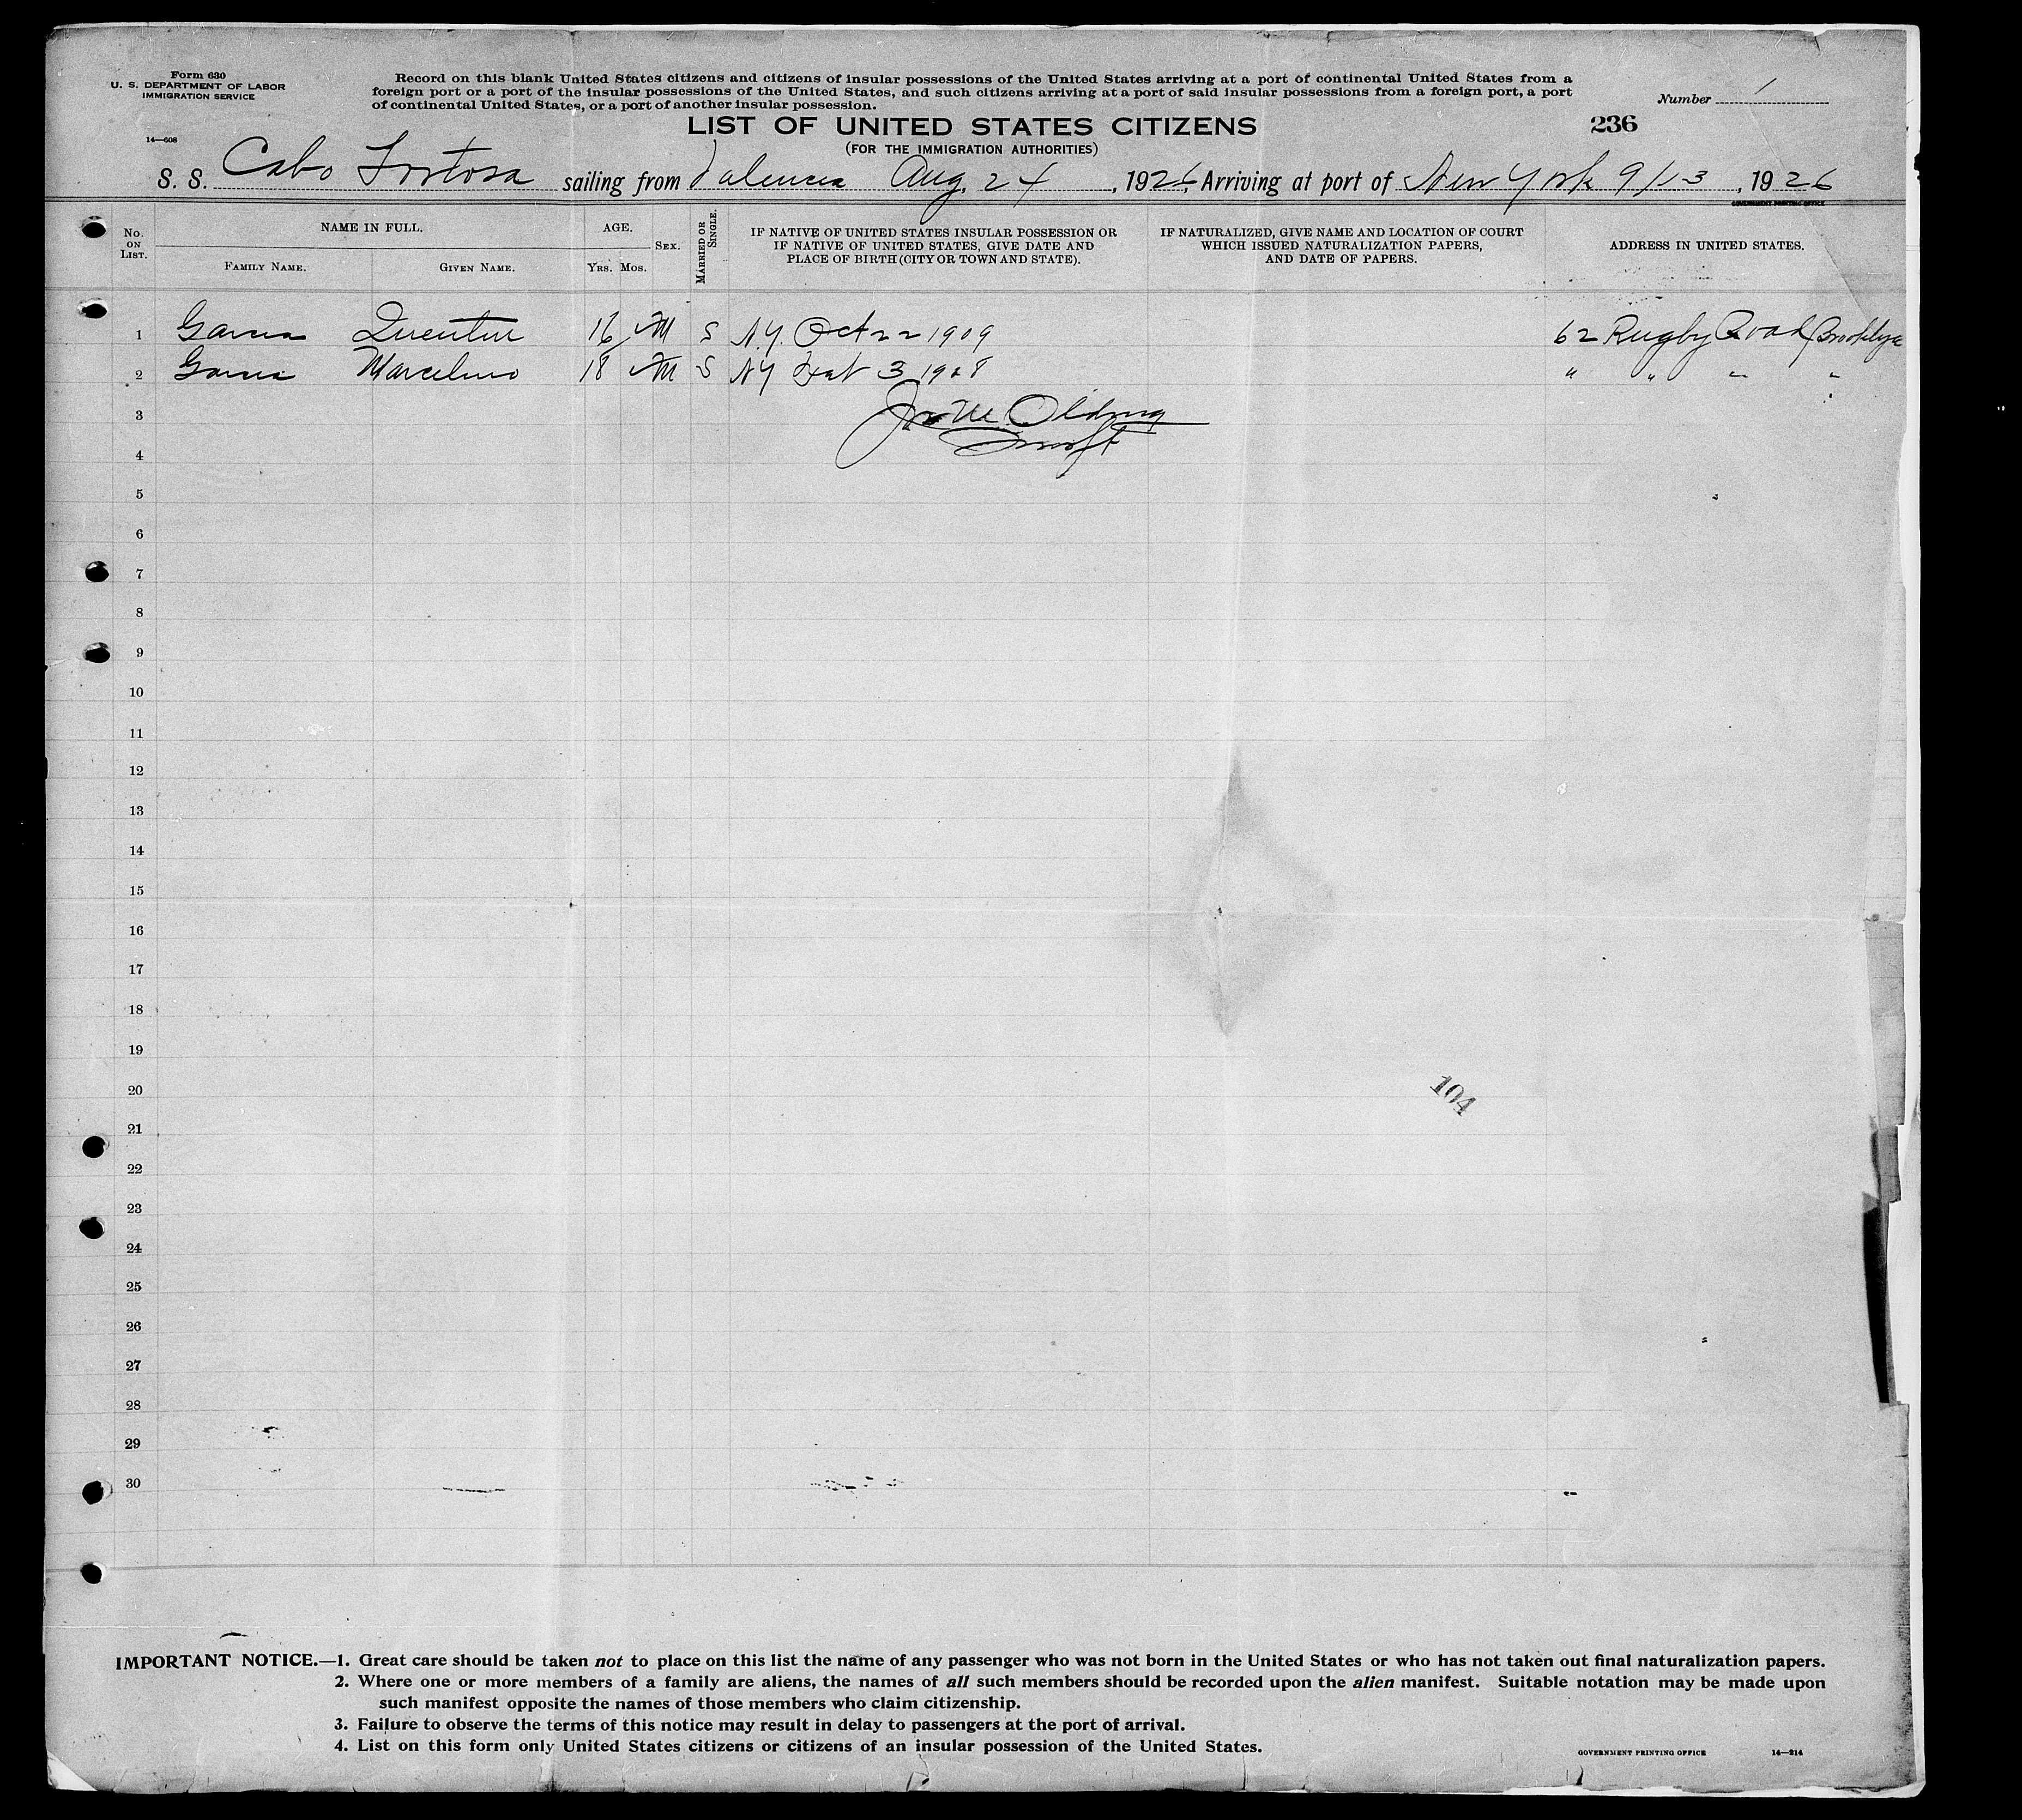 Form 630
U. S. DEPARTMENT OF LABOR
IMMIGRATION SERVICE
14—608
Record on this blank United States citizens and citizens of insular possessions of the United States arriving at a port of continental United States from a
foreign port or a port of the insular possessions of the United States, and such citizens arriving at a port of said insular possessions from a foreign port, a port
of continental United States, or a port of another insular possession.
Number 1
LIST OF UNITED STATES CITIZENS
236
(FOR THE IMMIGRATION AUTHORITIES)
S. S. Cabo Tortosa sailing from Valencia Aug. 24, 1926, Arriving at port of New York 9/13, 1926
GOVERNMENT PRINTING OFFICE
No. ON LIST.
NAME IN FULL.
FAMILY NAME.
GIVEN NAME.
AGE.
YRS. MOS.
SEX.
MARRIED OR SINGLE.
IF NATIVE OF UNITED STATES INSULAR POSSESSION OR
IF NATIVE OF UNITED STATES, GIVE DATE AND
PLACE OF BIRTH (CITY OR TOWN AND STATE).
IF NATURALIZED, GIVE NAME AND LOCATION OF COURT
WHICH ISSUED NATURALIZATION PAPERS,
AND DATE OF PAPERS.
ADDRESS IN UNITED STATES.
1 Garcia 16 M S N.Y. Oct 22 1909 62 Rugby Road Brooklyn
2 Garcia Marcelino 18 M S NY 3 1908 " " " "
3
4
5
6
7
8
9
10
11
12
13
14
15
16
17
18
19
20
104
21
22
23
24
25
26
27
28
29
30
IMPORTANT NOTICE.—1. Great care should be taken not to place on this list the name of any passenger who was not born in the United States or who has not taken out final naturalization papers.
2. Where one or more members of a family are aliens, the names of all such members should be recorded upon the alien manifest. Suitable notation may be made upon
such manifest opposite the names of those members who claim citizenship.
3. Failure to observe the terms of this notice may result in delay to passengers at the port of arrival.
4. List on this form only United States citizens or citizens of an insular possession of the United States.
GOVERNMENT PRINTING OFFICE 14—214